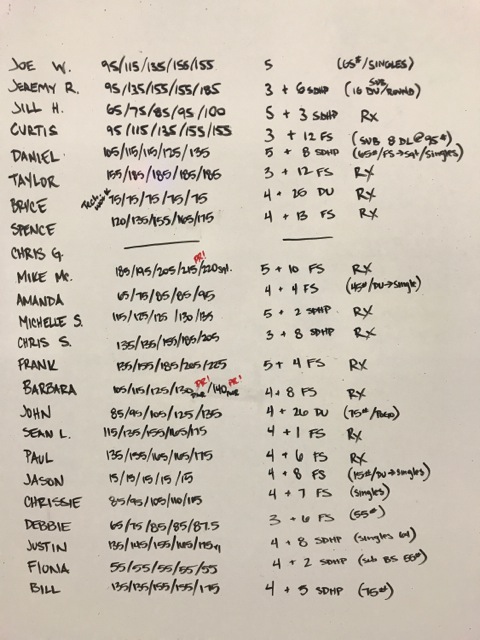 JOE W. 95/115/135/155/155 5 (65#/SINGLES)
JEREMY R. 95/135/155/155/185 3 + 6 SDHP (16 SUB DU/ROUND)
JILL H. 65/75/85/95/100 5 + 3 SDHP RX
CURTIS 95/115/135/155/155 3 + 12 FS (SUB 8 DL@95#)
DANIEL 105/115/115/125/135 5 + 8 SDHP (65#/FS→SQT/SINGLES)
TAYLOR 155/185/185/185/185 3 + 12 FS RX
BRYCE 75/75/75/75/75 4 + 20 DU RX
SPENCE 120/135/155/165/175 4 + 13 FS RX
CHRIS G.
MIKE MC. 185/195/205/215 PR!/220 5 + 10 FS RX
AMANDA 65/75/85/85/95 4 + 4 FS (45#/DU→SINGLE)
MICHELLE S. 115/125/125/130/135 5 + 2 SDHP RX
CHRIS S. 135/135/155/185/205 3 + 8 SDHP RX
FRANK 135/155/185/205/225 5 + 4 FS RX
BARBARA 105/115/125/130 PR!/140 PR! 4 + 8 FS RX
JOHN 85/95/105/125/135 4 + 20 DU (75#)
SEAN L. 115/135/155/165/175 4 + 1 FS RX
PAUL 135/155/165/165/175 4 + 6 FS RX
JASON 15/15/15/15/15 4 + 8 FS (15#/DU→SINGLES)
CHRISSIE 85/95/105/110/115 4 + 7 FS (SINGLES)
DEBBIE 65/75/85/85/87.5 3 + 6 FS (55#)
JUSTIN 135/145/155/165/175 4 + 8 SDHP (SINGLES
FIONA 55/55/55/55/55 4 + 2 SDHP (SUB BS 55#)
BILL 135/135/155/155/175 4 + 5 SDHP (75#)